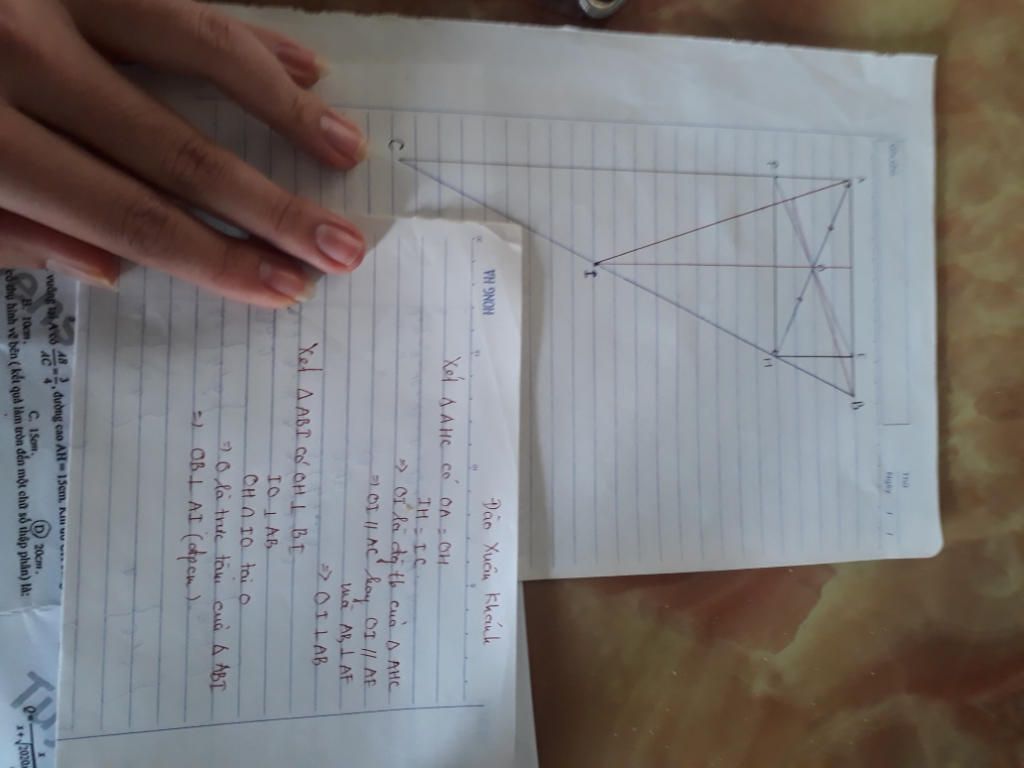 Thứ
Ngày / /
A
F
E
O
B
H
I
C
HỒNG HÀ
Đào Xuân Khánh
Xét Δ AHC có OA = OH
IH = IC
=> OI là đg tb của Δ AHC
=> OI // AC hay OI // AF
mà AB ⊥ AF
=> OI ⊥ AB
Xét Δ ABI có OH ⊥ BI
IO ⊥ AB
OH ∩ IO tại O
=> O là trực tâm của Δ ABI
=> OB ⊥ AI (đpcm)
vuông tại A có AB/AC = 3/4, đường cao AH = 15cm.
B. 10cm. C. 15cm. D 20cm.
hình vẽ bên (kết quả làm tròn đến một chữ số thập phân) là: